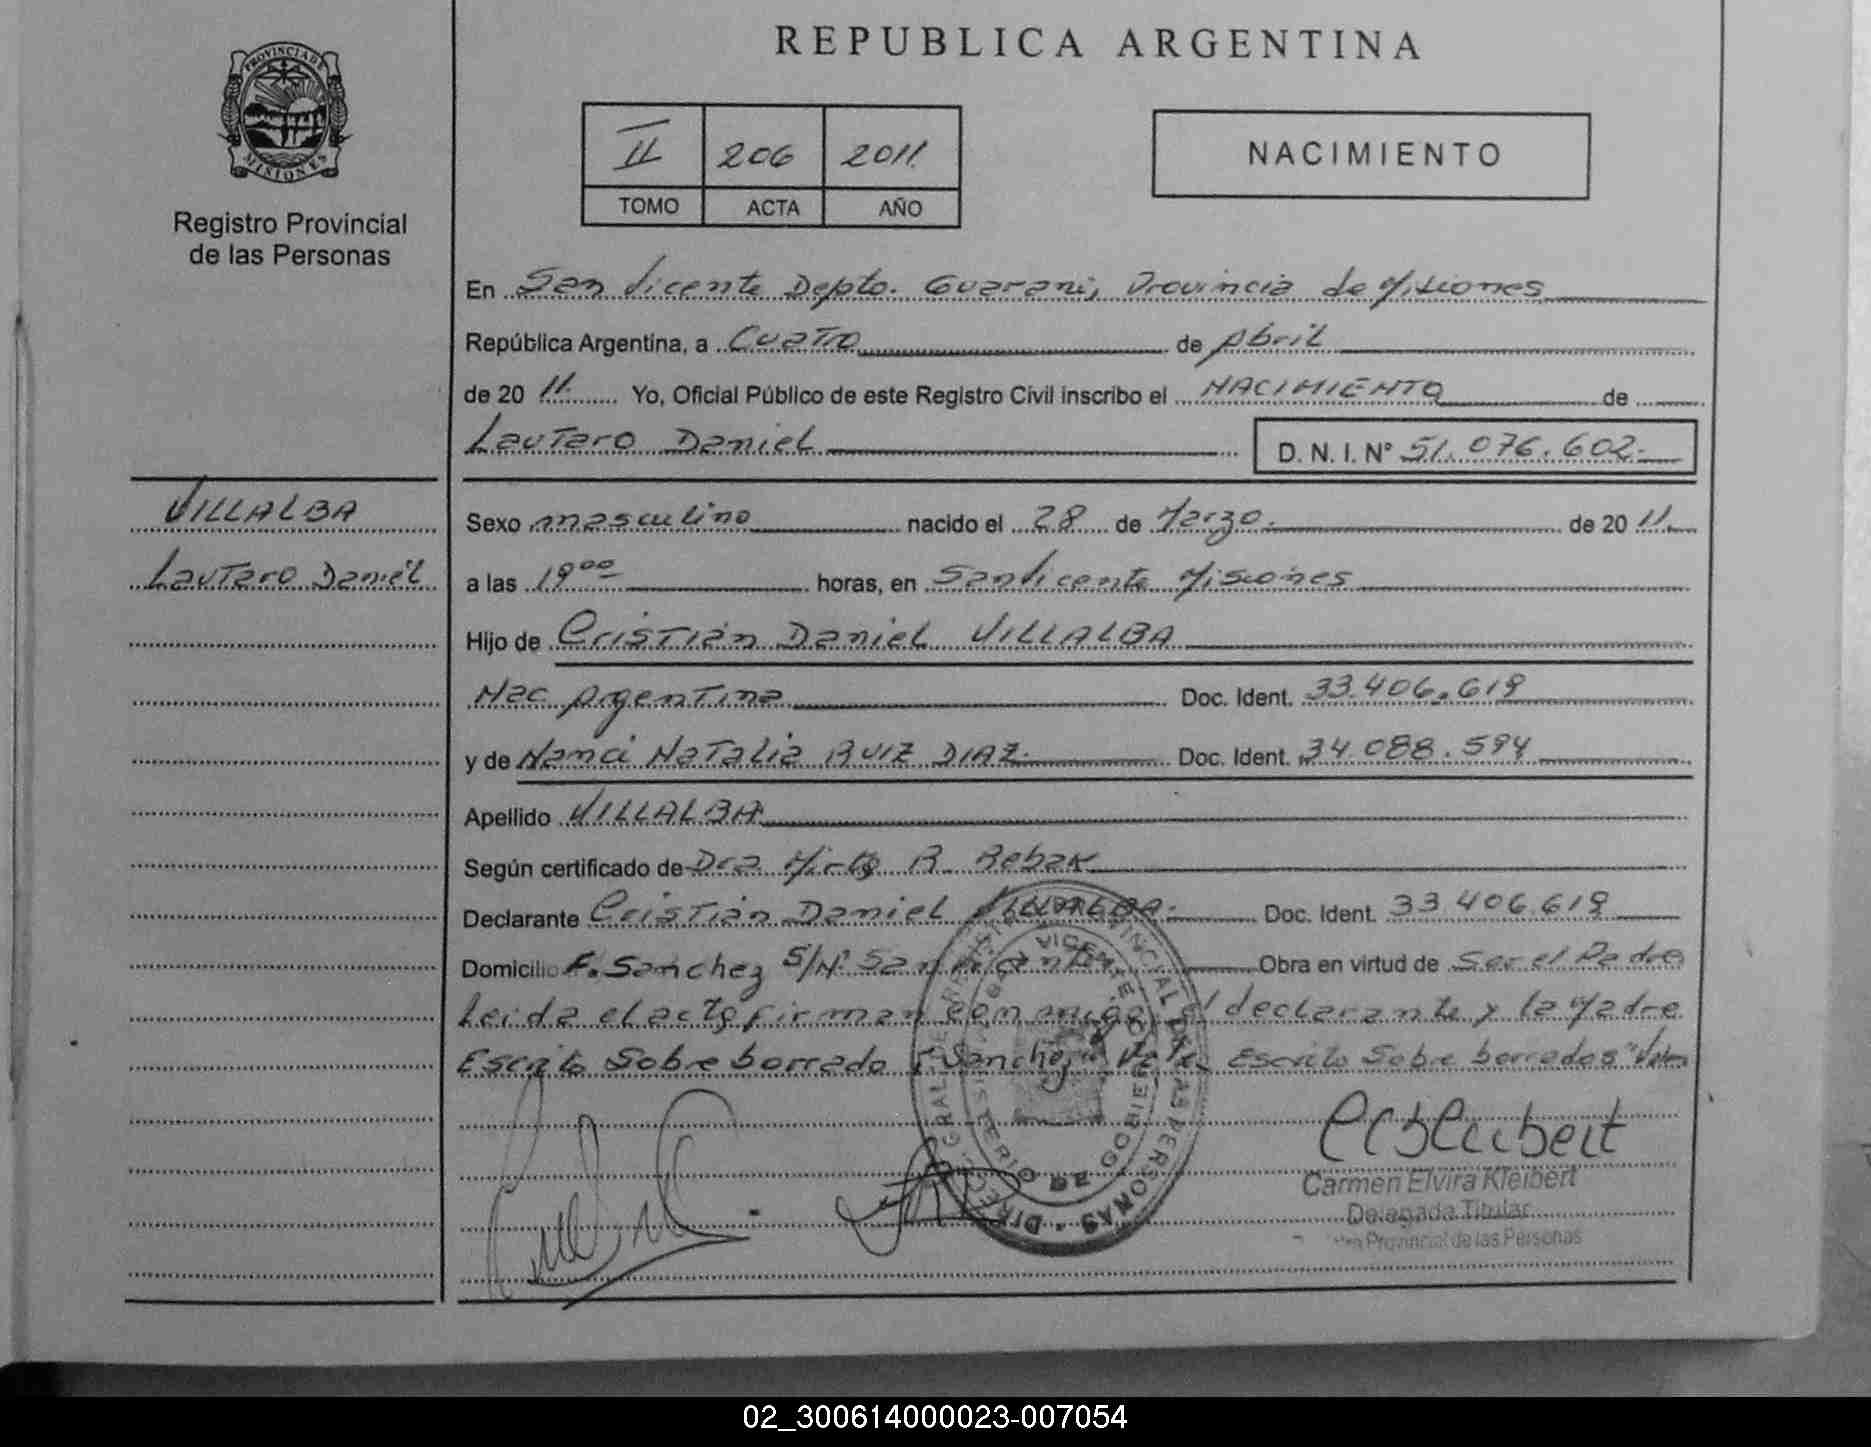 REPUBLICA ARGENTINA
PROVINCIA DE MISIONES
Registro Provincial
de las Personas
II 206 2011
TOMO ACTA AÑO
NACIMIENTO
En San Vicente Depto. Guarani, Provincia de Misiones
República Argentina, a Cuatro de Abril
de 20 11 Yo, Oficial Público de este Registro Civil inscribo el NACIMIENTO de
Lautaro Daniel D. N. I. Nº 51.076.602-
VILLALBA
Lautaro Daniel
Sexo masculino nacido el 28 de Marzo de 20 11
a las 19⁰⁰ horas, en San Vicente Misiones
Hijo de Cristián Daniel VILLALBA
Nac Argentina Doc. Ident. 33.406.619
y de Nanci Natalia RUIZ DIAZ Doc. Ident. 34.088.594
Apellido VILLALBA
Según certificado de Dra. Mirta R. Rebak
Declarante Cristián Daniel VILLALBA Doc. Ident. 33.406.619
Domicilio F. Sanchez S/Nº San Vicente Obra en virtud de Ser el Padre
Leida el acta firman conmigo el declarante y la Madre
Escrito Sobre borrado F. Sanchez Vale Escrito Sobre borrados Vale
Carmen Elvira Kleibert
Delegada Titular
Provincial de las Personas
02_300614000023-007054